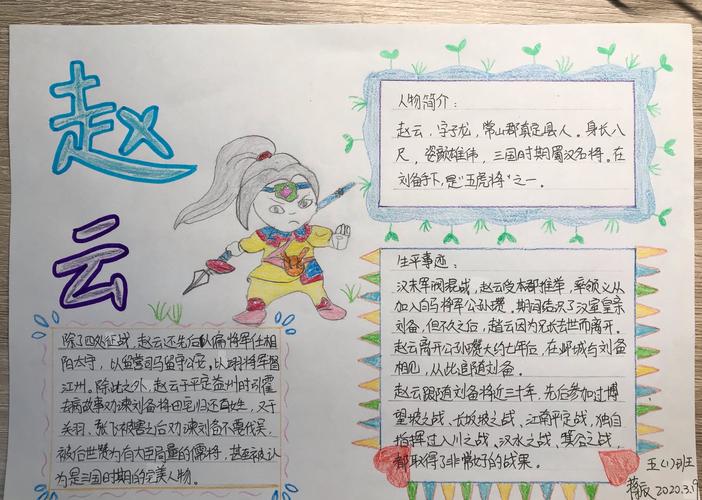 赵云
人物简介：
赵云，字子龙，常山郡真定县人。身长八
尺，姿颜雄伟，三国时期蜀汉名将。在
刘备手下，是“五虎将”之一。
生平事迹：
汉末军阀混战，赵云受本郡推举，率领义从
加入白马将军公孙瓒。期间结识了汉室皇亲
刘备，但不久之后，赵云因为兄长去世而离开。
赵云离开公孙瓒大约七年后，在邺城与刘备
相见，从此追随刘备。
赵云跟随刘备将近三十年，先后参加过博
望坡之战、长坂坡之战、江南平定战，独自
指挥过入川之战、汉水之战、箕谷之战，
都取得了非常好的战果。
除了四处征战，赵云还先后以偏将军任桂
阳太守，以留营司马留守公安，以翊将军督
江州。除此之外，赵云于平定益州时引霍
去病故事劝谏刘备将田宅归还百姓，又于
关羽、张飞被害之后劝谏刘备不要伐吴，
被后世赞为有大臣局量的儒将，甚至被认
为是三国时期的完美人物。
五(1)班
2020.3.9